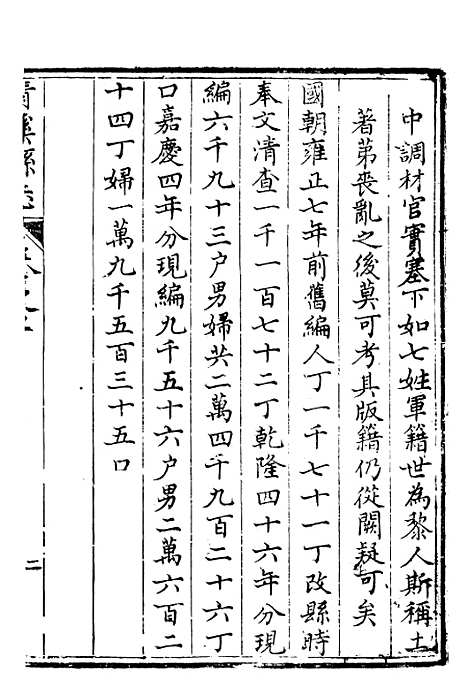 中調材官實塞下如七姓軍籍世為黎人斯稱土
著第喪亂之後莫可考其版籍仍從闕疑可矣
國朝雍正七年前舊編人丁一千七十一丁改縣時
奉文清查一千一百七十二丁乾隆四十六年分現
編六千九十三户男婦共二萬四千九百二十六丁
口嘉慶四年分現編九千五十六户男二萬六百二
十四丁婦一萬九千五百三十五口
清溪縣志
二